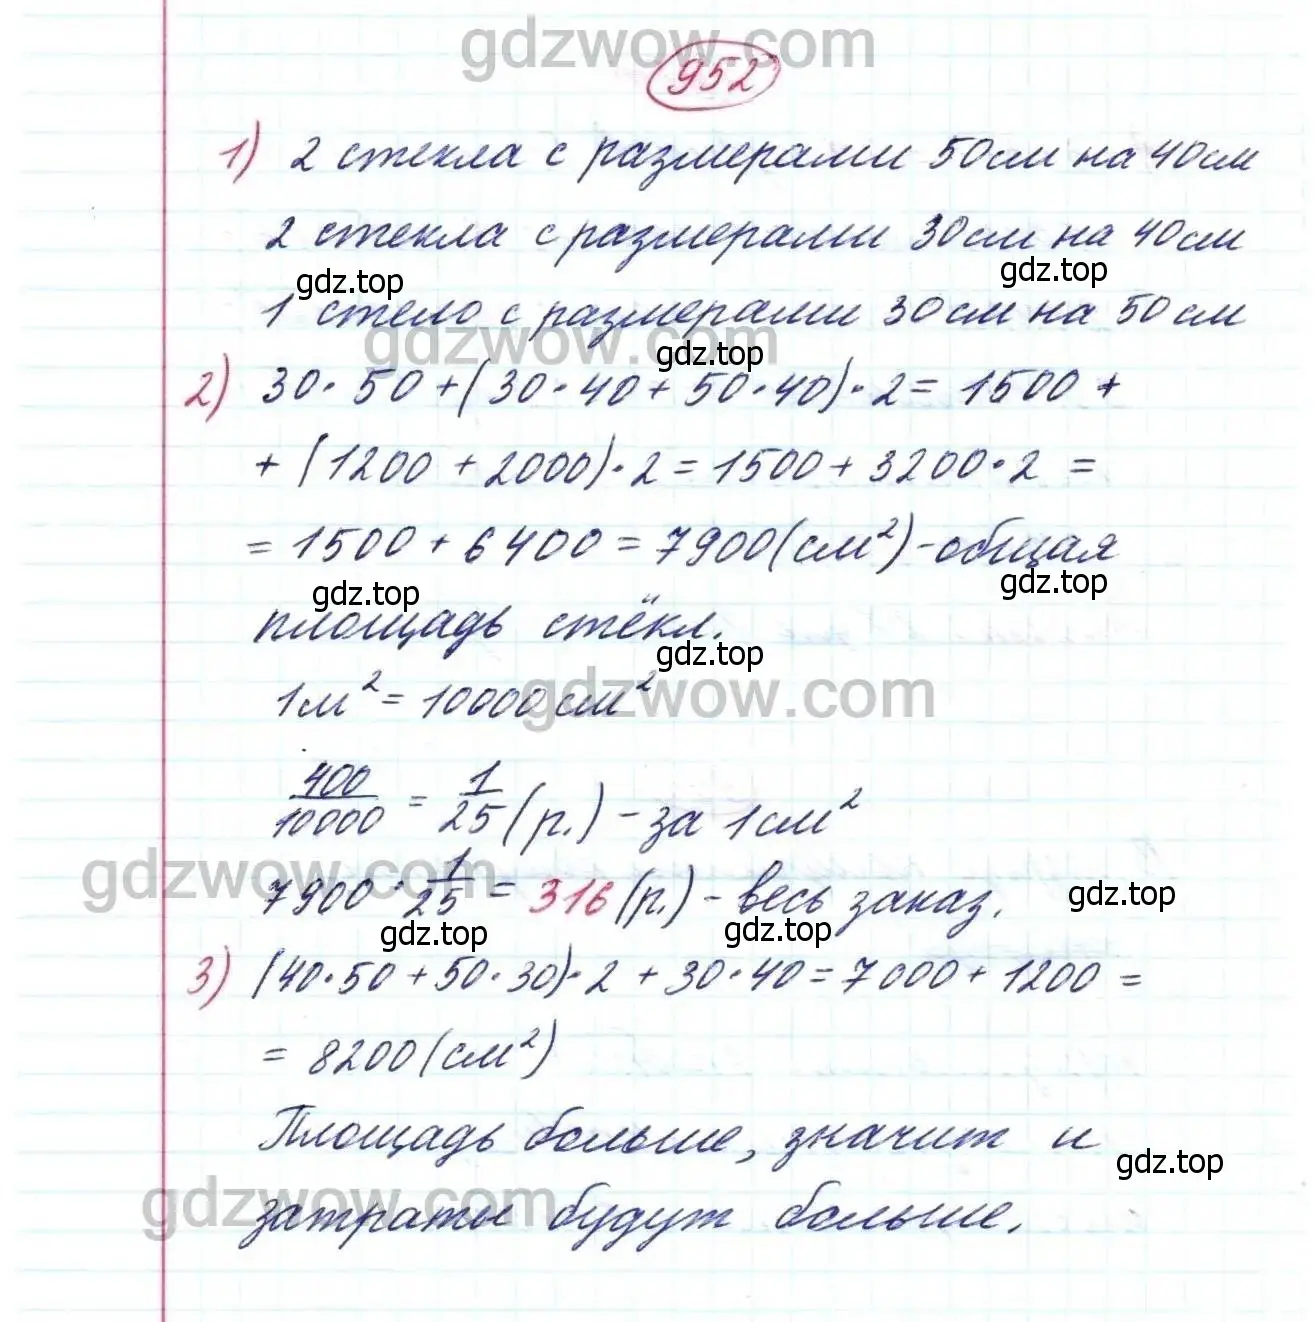 gdzwow.com
952
1) 2 стекла с размерами 50см на 40см
2 стекла с размерами 30см на 40см
gdz.top
gdz.top
1 стело с размерами 30см на 50см
gdzwow.com
gdz.top
2) 30·50+(30·40+50·40)·2=1500+
+(1200+2000)·2=1500+3200·2=
=1500+6400=7900(см²)-общая
gdz.top
gdz.top
площадь стёкл.
gdz.top
1м²=10000см²
gdzwow.com
400/10000 = 1/25 (р.) - за 1см²
gdzwow.com
7900·1/25 = 316 (р.) - весь заказ.
gdz.top
gdz.top
gdz.top
3) (40·50+50·30)·2+30·40=7000+1200=
=8200(см²)
Площадь больше, значит и
gdz.top
gdzwow.com
затраты будут больше.